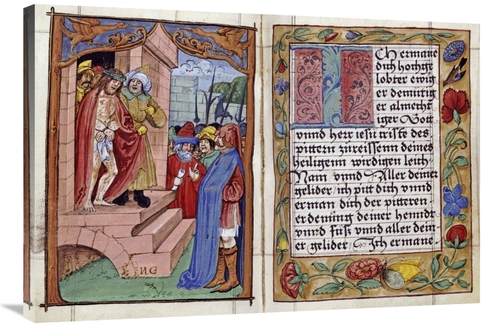 Ich ermane
dich hochge
lobter ewig
er demütig
er almecht
iger Gott
vnnd herr iesu criste des
pittern zureissenn deines
heiligenn wirdigen leich
Nam vnnd Aller deine
gelider ich pitt dich vnnd
erman dich der pitteren
erdening deiner henndt
vnnd Füss vnnd aller dein
er gelider Ich ermane